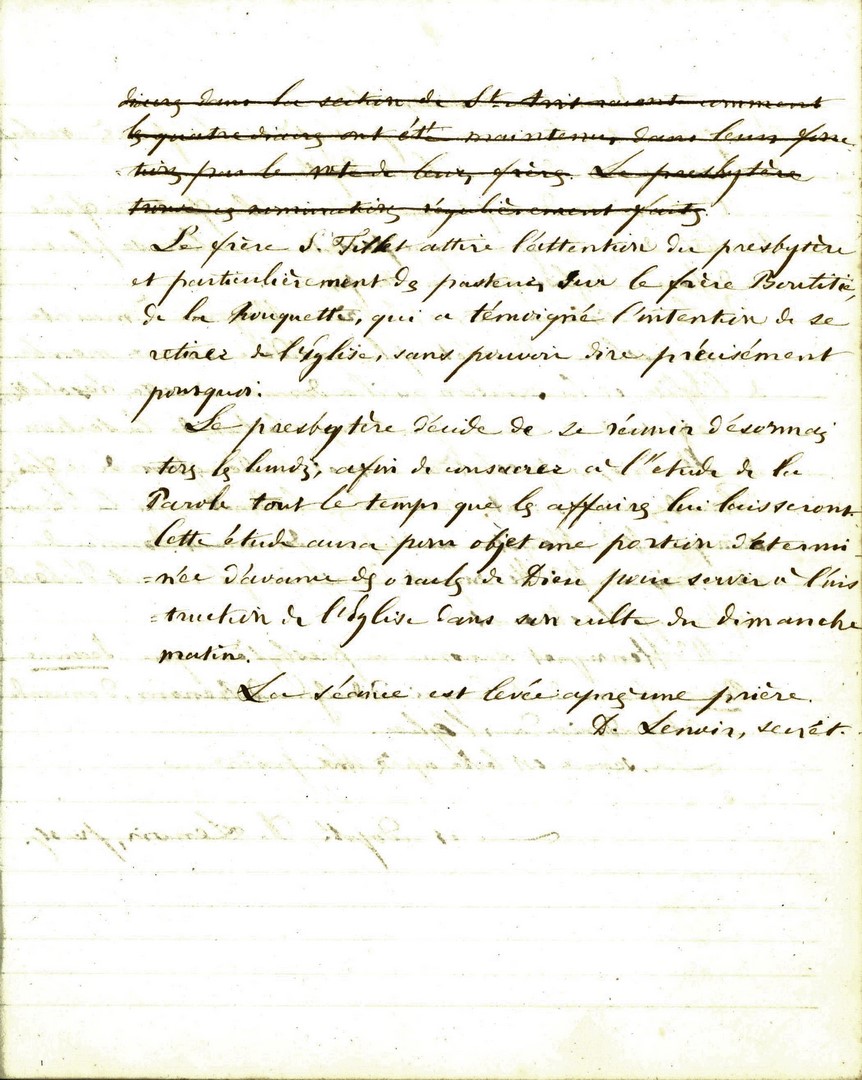 diacres dans la section de St. Avit savent comment
les quatre diacres ont été maintenus dans leurs fonc
tions par le vote de leurs frères. Le presbytère
trouve ces nominations régulièrement faites.
Le frère S. attire l'attention du presbytère
et particulièrement des pasteurs, sur le frère
de la Rouquette, qui a témoigné l'intention de se
retirer de l'Église, sans pouvoir dire précisément
pourquoi.
Le presbytère décide de se réunir désormais
tous les lundis, afin de consacrer à l'étude de la
Parole tout le temps que les affaires lui laisseront.
Cette étude aura pour objet une portion détermi-
=née d'avance des oracles de Dieu pour servir à l'ins
=truction de l'Église dans son culte du dimanche
matin.
La séance est levée après une prière.
D. Lenoir, secrét.